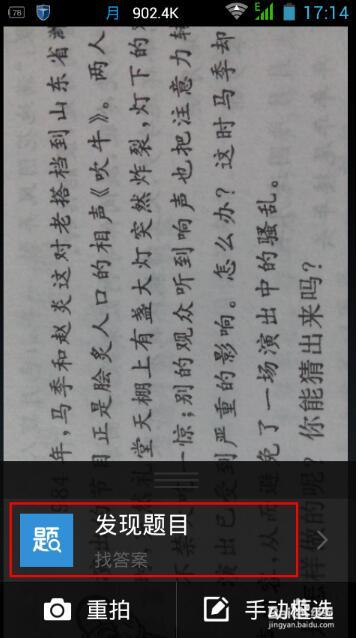 78 月 902.4K E 17:14
984年,马季和赵炎这对老搭档到山东省
的节目正是脍炙人口的相声《吹牛》。两人
然礼堂天棚上有盏大灯突然炸裂,灯下的
不禁大吃一惊;别的观众听到响声也把注意力转
演出已受到严重的影响。怎么办?这时马季却
,从而避免了一场演出中的骚乱。
样做的呢?你能猜出来吗?
题 发现题目
找答案
重拍 手动框选
jingyan.baidu.com